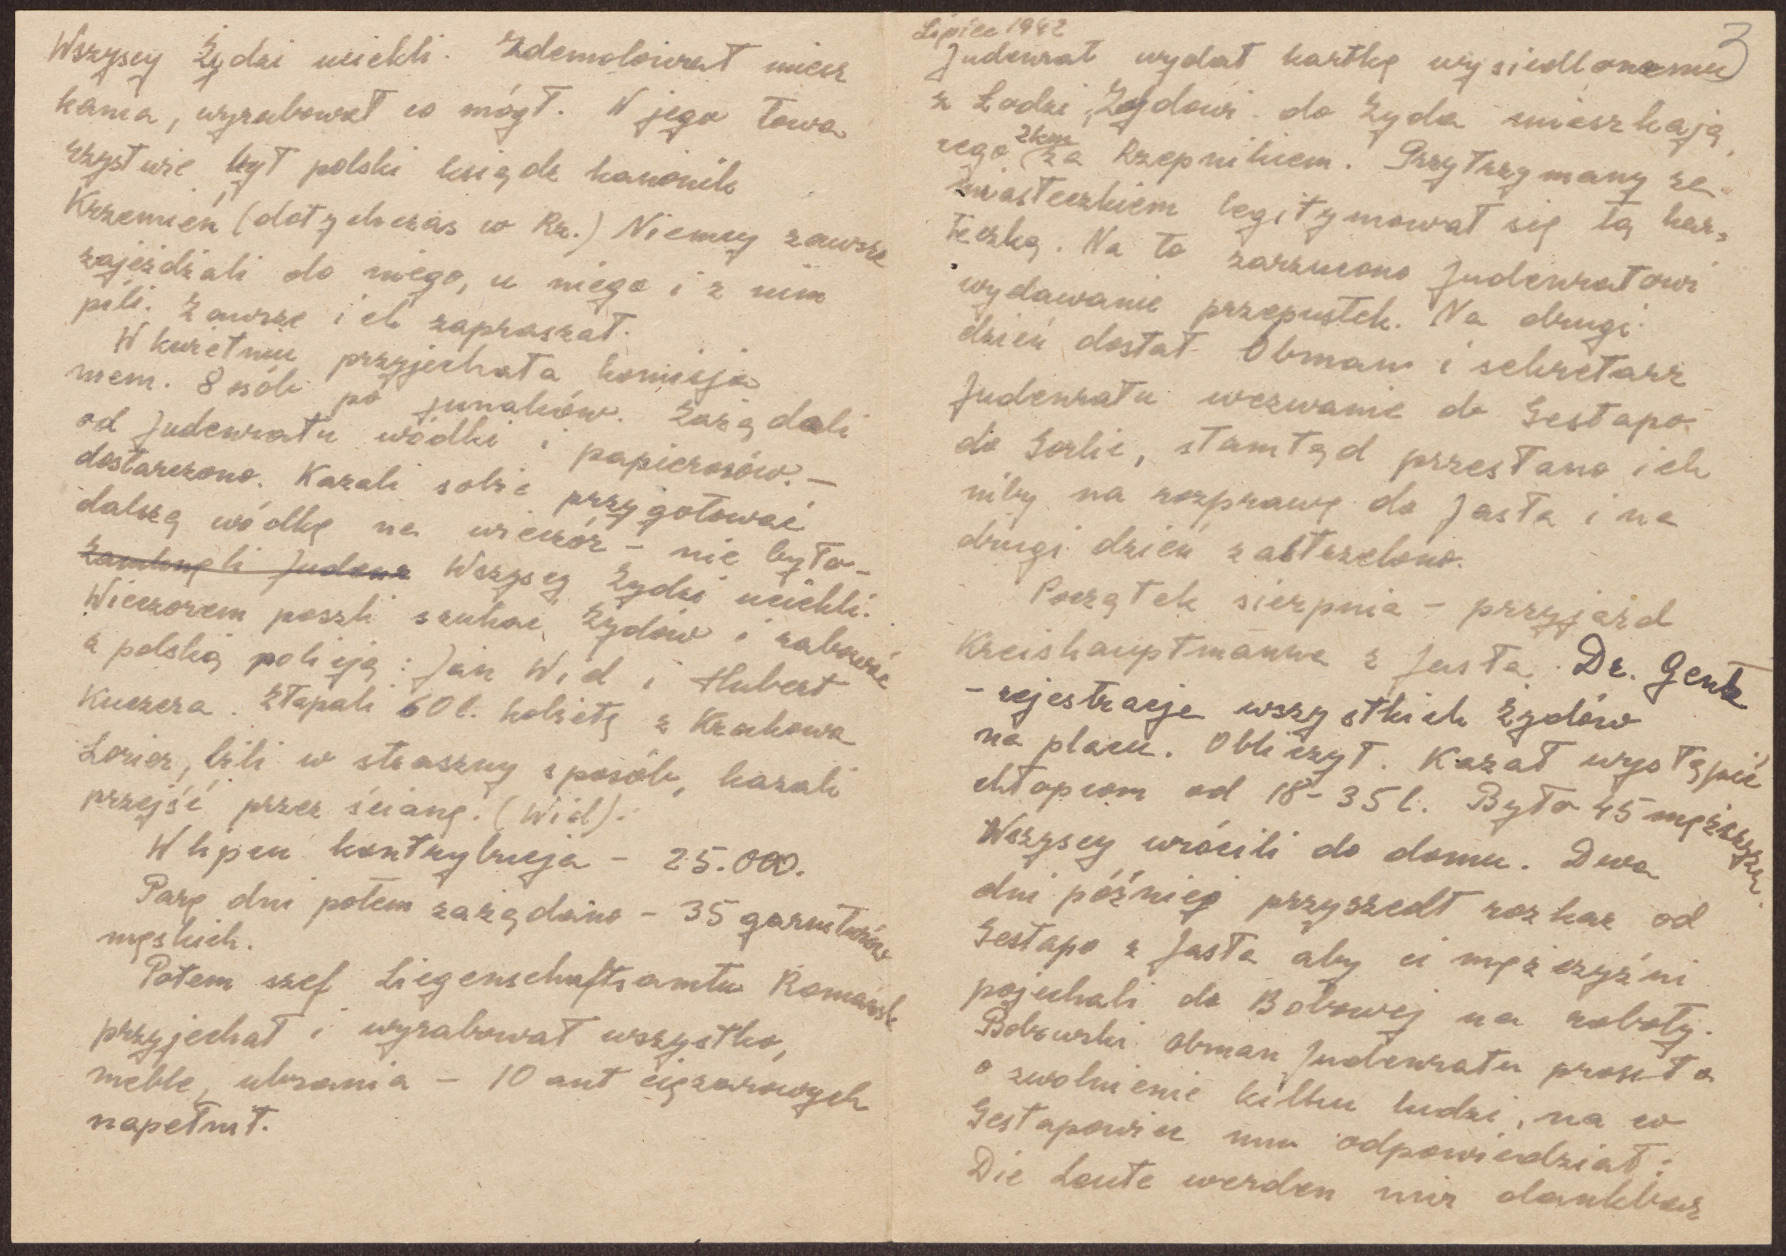 Wszyscy Żydzi uciekli. Zdemolował miesz
kania, wyrabował co mógł. W jego towa
rzystwie był polski ksiądz kanonik
Krzemień (dotychczas w Rz.) Niemcy zawsze
zajeżdżali do niego, u niego i z nim
pili. Zawsze ich zapraszał.
W kwietniu przyjechała komisja
niem. 8 osób po junaków. Zażądali
od Judenratu wódki i papierosów. –
dostarczono. Kazali sobie przygotować
dalszą wódkę na wieczór – nie było –
Zamknęli Judenr Wszyscy Żydzi uciekli.
Wieczorem poszli szukać Żydów i rabować
z polską policją: Jan Wid i Hubert
Kuczera. Złapali 60 l. kobietę z Krakowa
Lorier, bili w straszny sposób, kazali
przejść przez ścianę. (Wid).
W lipcu kontrybucja – 25.000.
Parę dni potem zażądano – 35 garniturów
męskich.
Potem szef Liegenschaftsamtu
przyjechał i wyrabował wszystko,
meble, ubrania – 10 aut ciężarowych
napełnił.
3
Lipiec 1942
Judenrat wydał kartkę wysiedlonemu
z Łodzi Żydowi do Żyda mieszkają
cego 2 km za Rzepnikiem. Przytrzymany za
miasteczkiem legitymował się tą kar-
teczką. Na to zarzucono Judenratowi
wydawanie przepustek. Na drugi
dzień dostał Obmann i sekretarz
Judenratu wezwanie do Gestapo
do Gorlic, stamtąd przesłano ich
niby na rozprawę do Jasła i na
drugi dzień zastrzelono.
Początek sierpnia – przyjazd
Kreishauptmanna z Jasła Dr. Gentz
– rejestracje wszystkich Żydów
na placu. Obliczył. Kazał wystąpić
chłopcom od 18–35 l. Było 45 mężczyzn.
Wszyscy wrócili do domu. Dwa
dni później przyszedł rozkaz od
Gestapo z Jasła aby ci mężczyźni
pojechali do Bobowej na roboty.
Obman Judenratu prosił o
o zwolnienie kilku ludzi, na co
Gestapowiec mu odpowiedział:
Die Leute werden mir dankbar